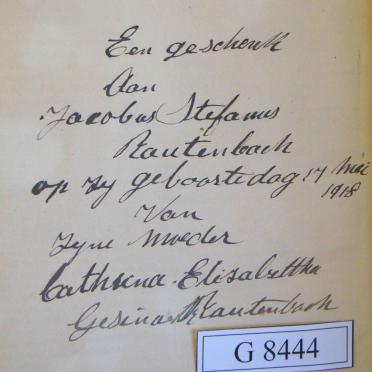 Een geschenk
Aan
Jacobus Stefanus
Rautenbach
op zy geboortedag 17 Mei
1918
Van
Zyne Moeder
Cathrena Elisabettha
Gesina Rautenbach
G 8444